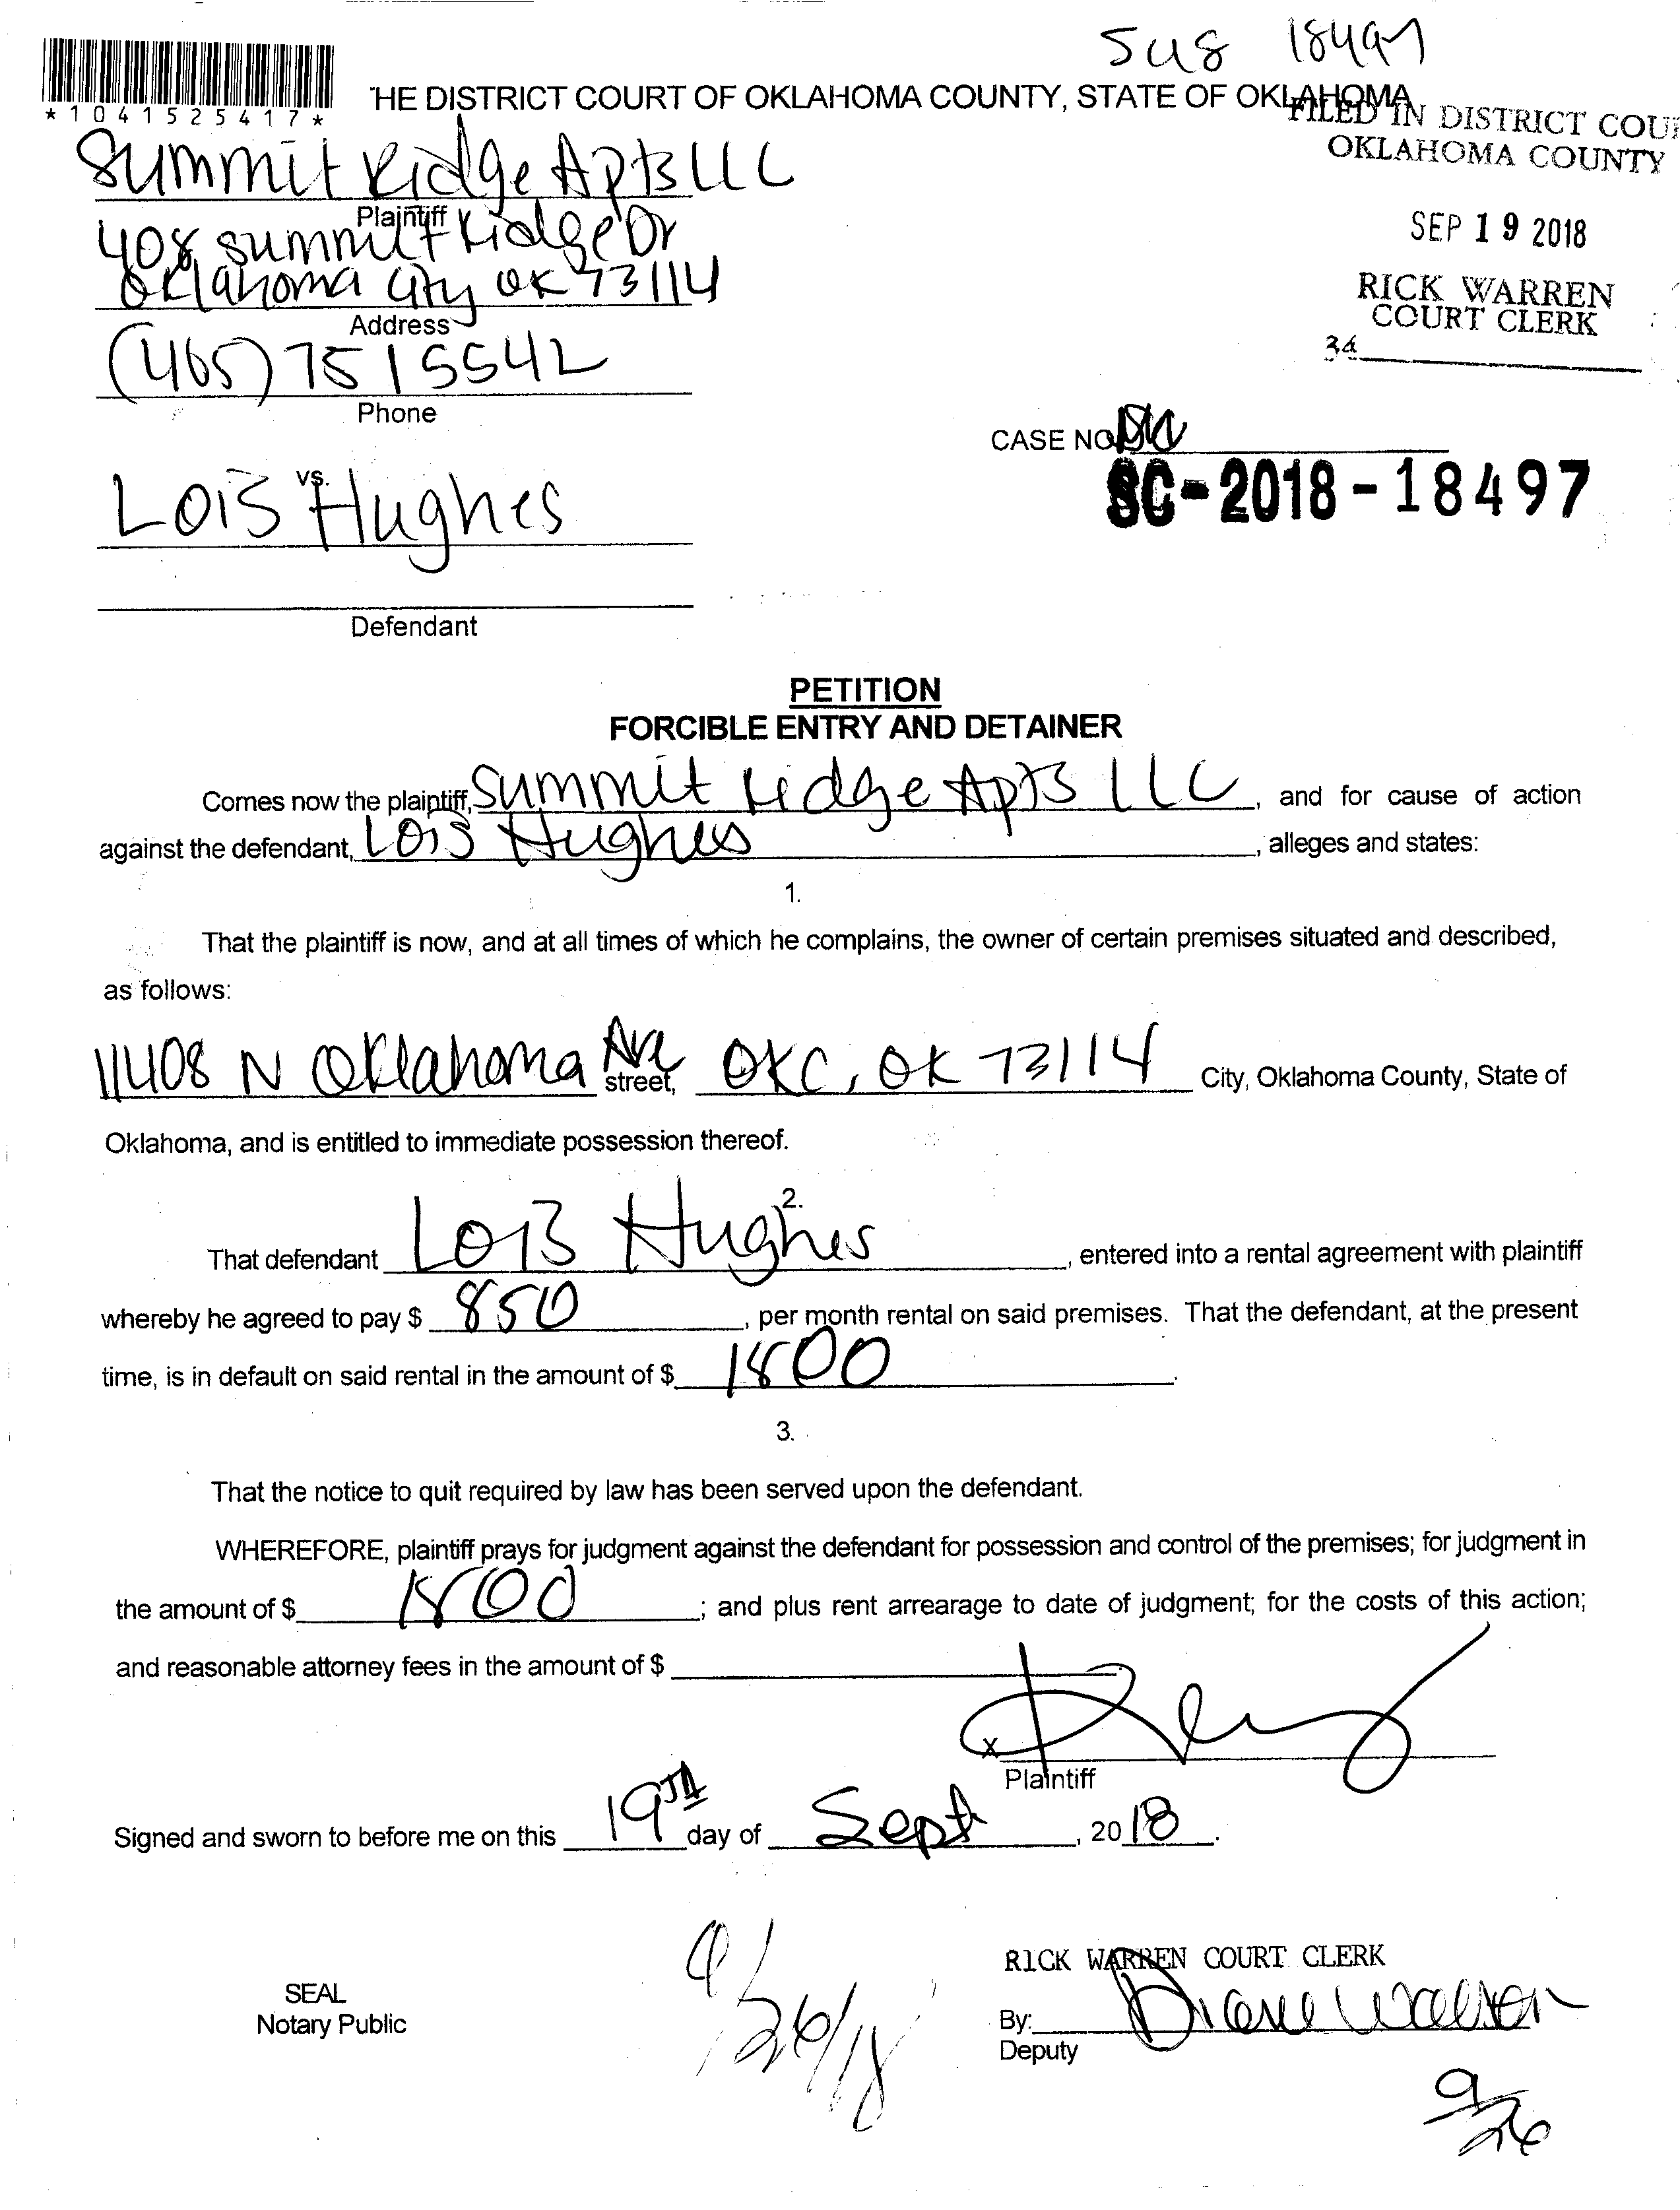 5U8 18497
*1041525417*
HE DISTRICT COURT OF OKLAHOMA COUNTY, STATE OF OKLAHOMA
FILED IN DISTRICT COU
OKLAHOMA COUNTY
SEP 19 2018
RICK WARREN
COURT CLERK
Summit Ridge Apts LLC
Plaintiff
408 summit Ridge Dr
Oklahoma City OK 73114
Address
(405) 751 5542
Phone
CASE NO
SC-2018-18497
vs.
Lois Hughes
Defendant
PETITION
FORCIBLE ENTRY AND DETAINER
Comes now the plaintiff, Summit Ridge Apts LLC, and for cause of action
against the defendant, Lois Hughes, alleges and states:
1.
That the plaintiff is now, and at all times of which he complains, the owner of certain premises situated and described,
as follows:
11408 N Oklahoma Ave street, OKC, OK 73114 City, Oklahoma County, State of
Oklahoma, and is entitled to immediate possession thereof.
2.
That defendant Lois Hughes, entered into a rental agreement with plaintiff
whereby he agreed to pay $ 850, per month rental on said premises. That the defendant, at the present
time, is in default on said rental in the amount of $ 1800.
3.
That the notice to quit required by law has been served upon the defendant.
WHEREFORE, plaintiff prays for judgment against the defendant for possession and control of the premises; for judgment in
the amount of $ 1800; and plus rent arrearage to date of judgment; for the costs of this action;
and reasonable attorney fees in the amount of $
x
Plaintiff
Signed and sworn to before me on this 19TH day of Sept, 2018.
9/26/18
RICK WARREN COURT CLERK
SEAL
Notary Public
By: Diane Walton
Deputy
9/26